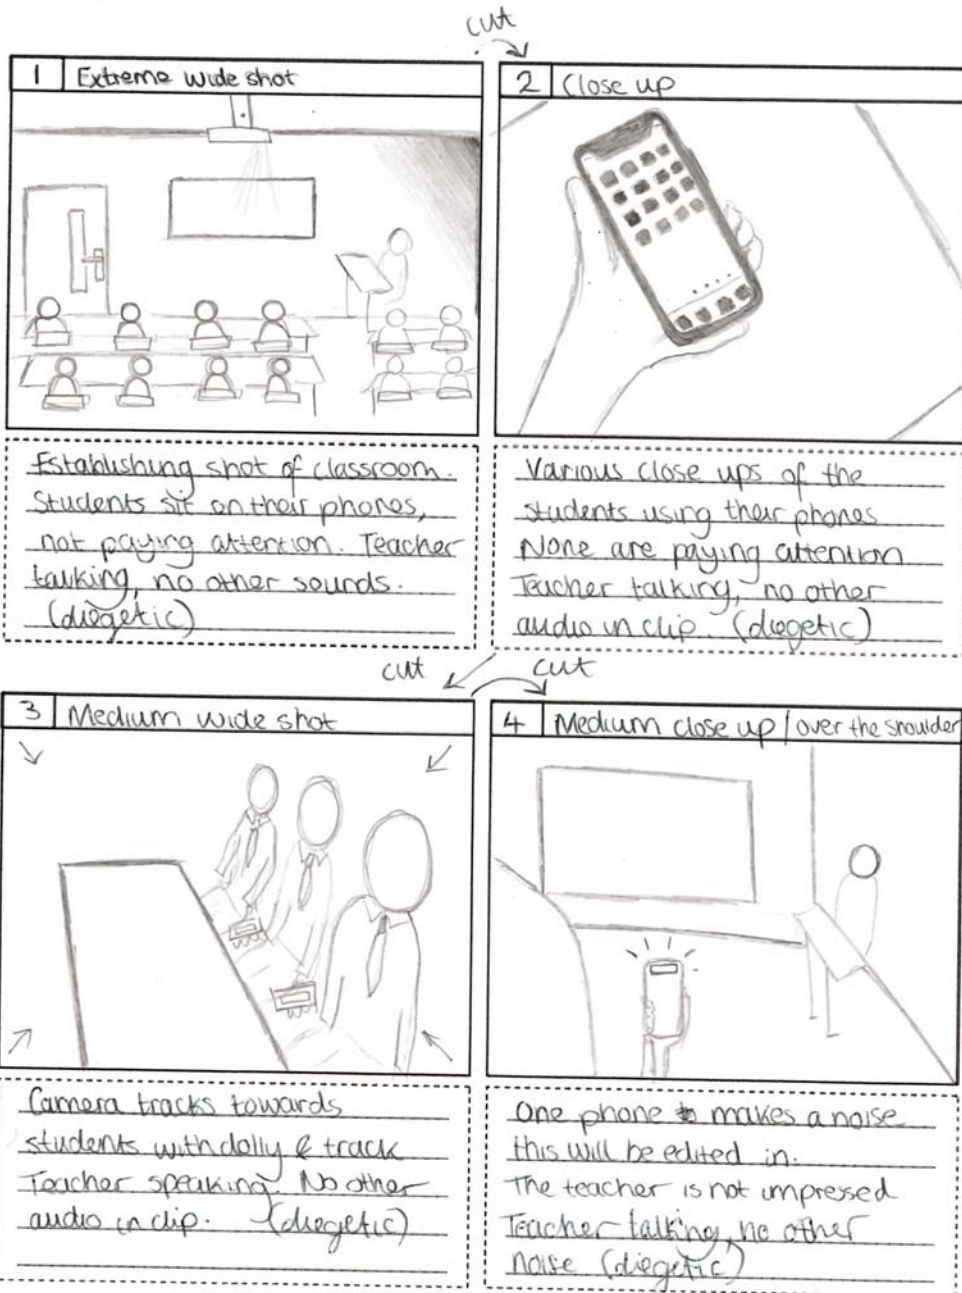 cut
1 Extreme wide shot
Establishing shot of classroom.
Students sit on their phones,
not paying attention. Teacher
talking, no other sounds.
(diegetic)
2 Close up
Various close ups of the
students using their phones
None are paying attention
Teacher talking, no other
audio in clip. (diegetic)
cut
cut
3 Medium wide shot
Camera tracks towards
students with dolly & track
Teacher speaking. No other
audio in clip. (diegetic)
4 Medium close up / over the shoulder
One phone makes a noise
this will be edited in.
The teacher is not impressed
Teacher talking, no other
noise (diegetic)